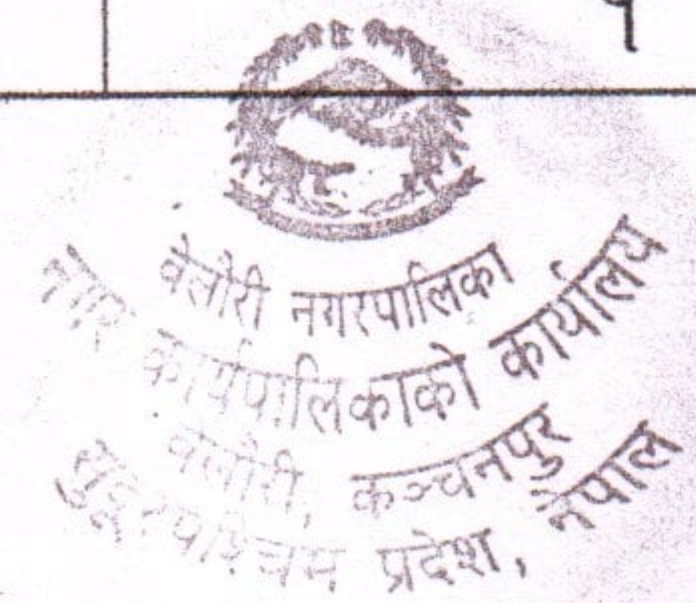 १
वेलौरी नगरपालिका
नगर कार्यपालिकाको कार्यालय
वेलौरी, कञ्चनपुर
सुदूरपश्चिम प्रदेश, नेपाल